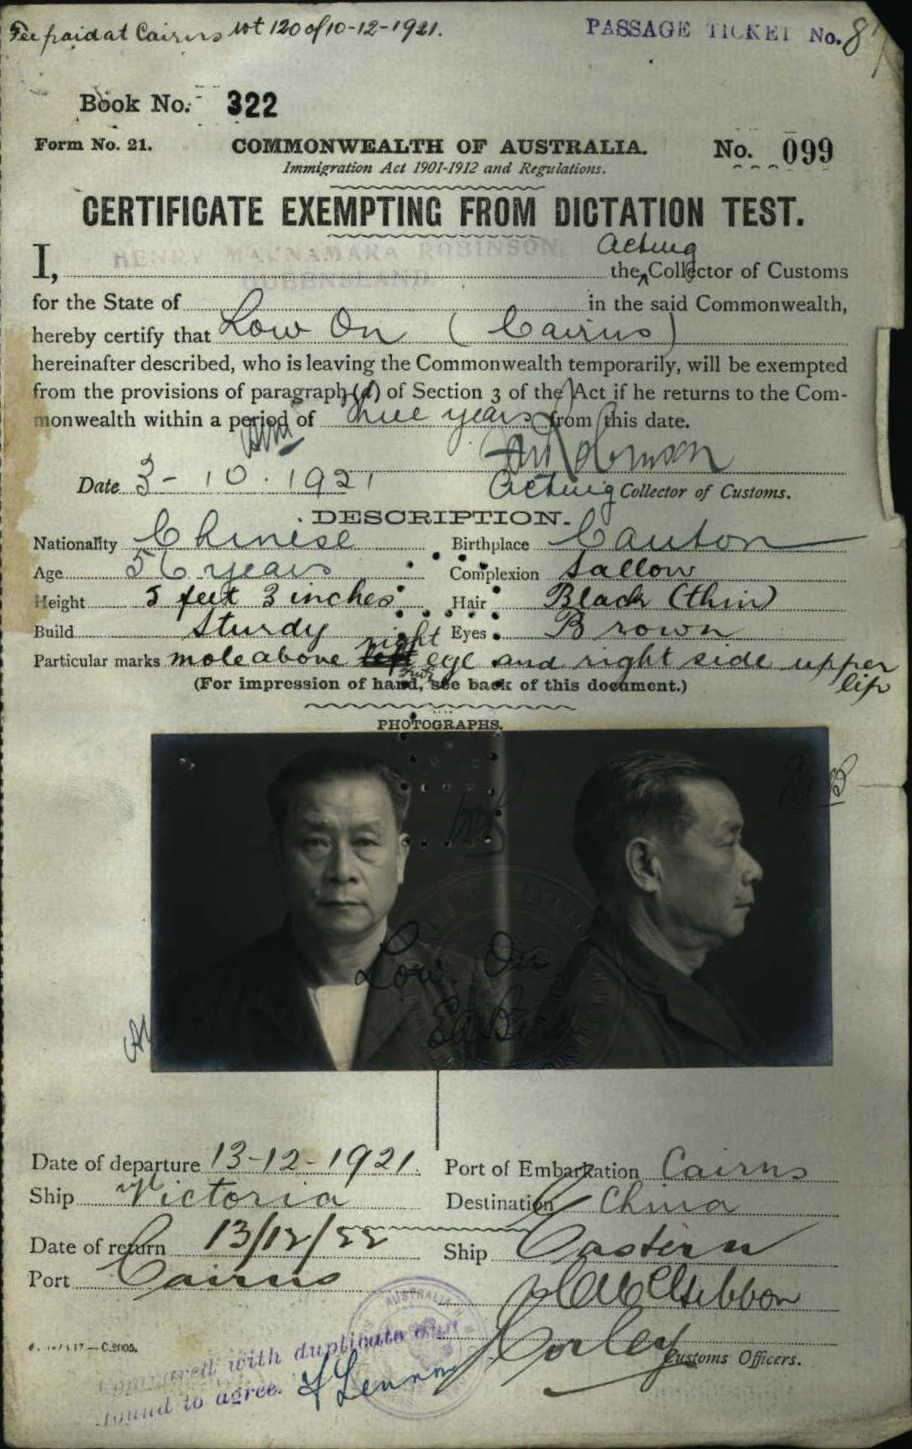 Fee paid at Cairns rct 120 of 10-12-1921.
PASSAGE TICKET No. 87
Book No. 322
Form No. 21.
COMMONWEALTH OF AUSTRALIA.
No. 099
Immigration Act 1901-1912 and Regulations.
CERTIFICATE EXEMPTING FROM DICTATION TEST.
I, HENRY MACNAMARA ROBINSON, the Acting Collector of Customs
for the State of QUEENSLAND in the said Commonwealth,
hereby certify that Low On (Cairns)
hereinafter described, who is leaving the Commonwealth temporarily, will be exempted
from the provisions of paragraph (a) of Section 3 of the Act if he returns to the Com-
monwealth within a period of three years from this date.
Date 3-10.1921
Acting Collector of Customs.
DESCRIPTION.
Nationality Chinese Birthplace Canton
Age 56 years Complexion Sallow
Height 5 feet 3 inches Hair Black (thin)
Build Sturdy Eyes Brown
Particular marks mole above left right eye and right side upper lip
(For impression of hand, see back of this document.)
PHOTOGRAPHS.
Low On
Date of departure 13-12-1921. Port of Embarkation Cairns
Ship Victoria Destination China
Date of return 13/12/22 Ship Eastern
Port Cairns
AUSTRALIA
Customs Officers.
Compared with duplicate and
found to agree.